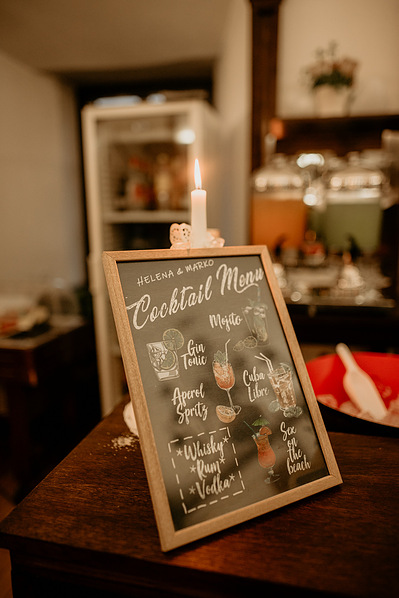 HELENA & MARKO
Cocktail Menu
Mojito
Gin
Tonic
Aperol
Spritz
Cuba
Libre
*Whisky*
*Rum*
*Vodka*
Sex
on
the
beach